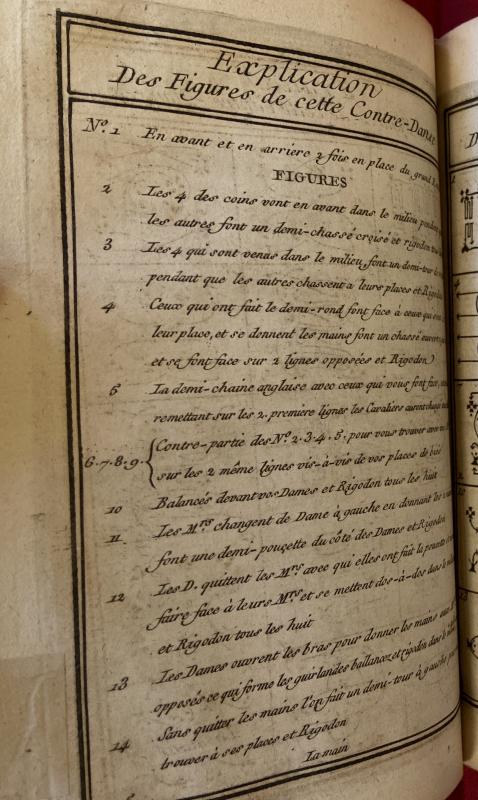 Explication
Des Figures de cette Contre-Danse
N.º 1 En avant et en arriere 2 fois en place du grand
FIGURES
2 Les 4 des coins vont en avant dans le milieu pendant
les autres font un demi-chassé croisé et rigodon
3 Les 4 qui sont venus dans le milieu, font un demi-tour
pendant que les autres chassent a leurs places et Rigodon
4 Ceux qui ont fait le demi-rond font face à ceux qui
leur place, et se donnent les mains font un chassé ouvert
et se font face sur 2 lignes opposées et Rigodon
5 La demi-chaine anglaise avec ceux qui vous font face,
remettant sur les 2. premiere lignes les Cavaliers auront changé
6.7.8.9. Contre-partie des Nº 2.3.4.5. pour vous trouver
sur les 2 même lignes vis-à-vis de vos places de biais
10 Balancés devant vos Dames et Rigodon tous les huit
11 Les Mrs changent de Dame à gauche en donnant les
font une demi-pouçette du côté des Dames et Rigodon
12 Les D. quittent les Mrs avec qui elles ont fait la poucette
faire face à leurs Mrs et se mettent dos-à-dos dans le
et Rigodon tous les huit
13 Les Dames ouvrent les bras pour donner les mains aux
opposés ce qui forme les guirlandes ballancez et rigodon dans le
14 Sans quitter les mains l'on fait un demi-tour à gauche pour
trouver à ses places et Rigodon
La main